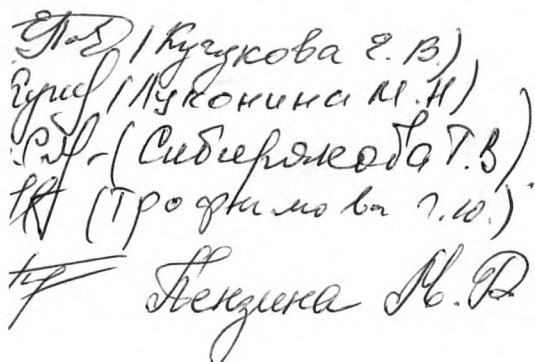 (Кучукова Е.В.)
(Луконина М.Н)
(Сибирякова Т.В)
(Трофимова Г.Ю.)
Пензина М.В